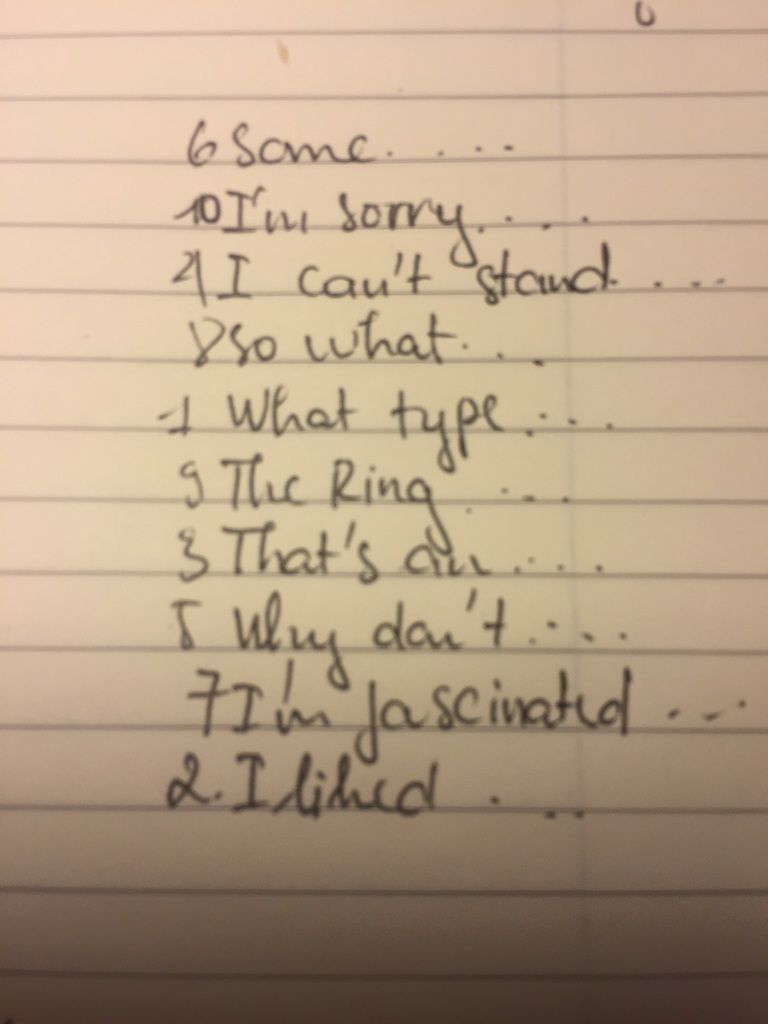 6 Some.....
10 I'm sorry.....
4 I can't stand....
8 so what....
1 What type....
9 The Ring....
3 That's an....
5 Why don't....
7 I'm fascinated...
2. I liked....